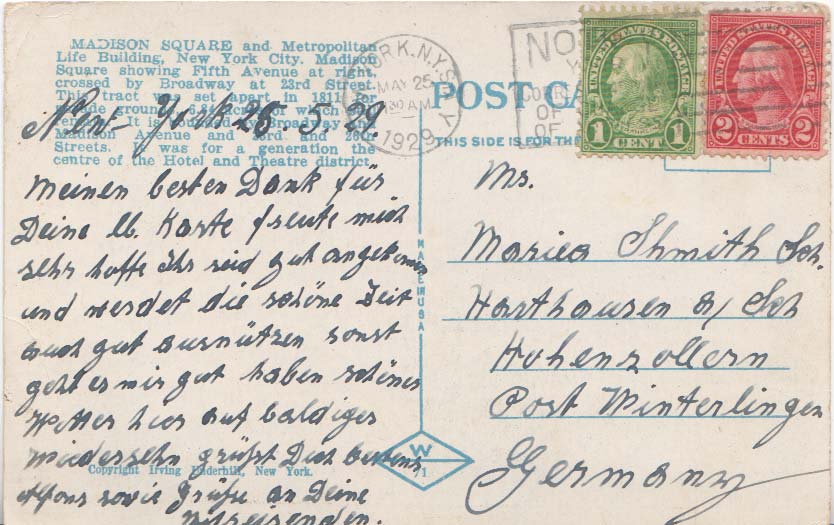 MADISON SQUARE and Metropolitan
Life Building, New York City. Madison
Square showing Fifth Avenue at right,
crossed by Broadway at 23rd Street.
This tract was set apart in 1811 for
New-York 26.5.29.
Madison Avenue and 23rd and 26th
Streets. It was for a generation the
centre of the Hotel and Theatre district.
Meinen besten Dank für
Deine lb. Karte freute mich
sehr hoffe Ihr seid gut angekommen
und werdet die schöne Zeit
auch gut ausnützen sonst
geht es mir gut haben schönes
Wetter hier auf baldiges
Wiedersehn grüßt Dich bestens
Alfons sowie Grüße an Deine
Mitreisenden.
Copyright Irving Underhill, New York.
YORK, N.Y.
MAY 25
30 AM
1929
POST CA
THIS SIDE IS FOR THE
UNITED STATES POSTAGE
1 CENT 1
UNITED STATES POSTAGE
2 CENTS 2
NO
OF
OF
MADE IN USA
W
71
Ms.
Mariea Shmith Sch.
Harthausen a/Sch
Hohenzollern
Post Winterlingen
Germany